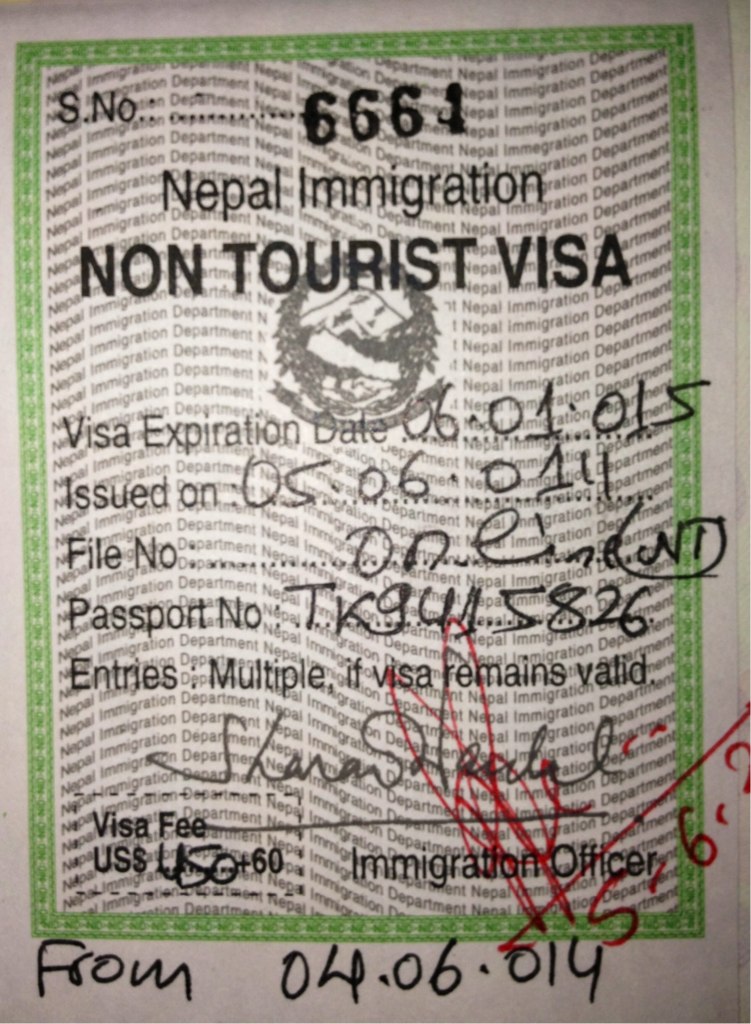 S.No.: 6661
Nepal Immigration
NON TOURIST VISA
Visa Expiration Date 06.01.015
Issued on : 05.06.014
File No : online (NT)
Passport No : TK9415826
Entries : Multiple, if visa remains valid.
Visa Fee
US$ 450+60
Immigration Officer
5-6-2
From 04.06.014